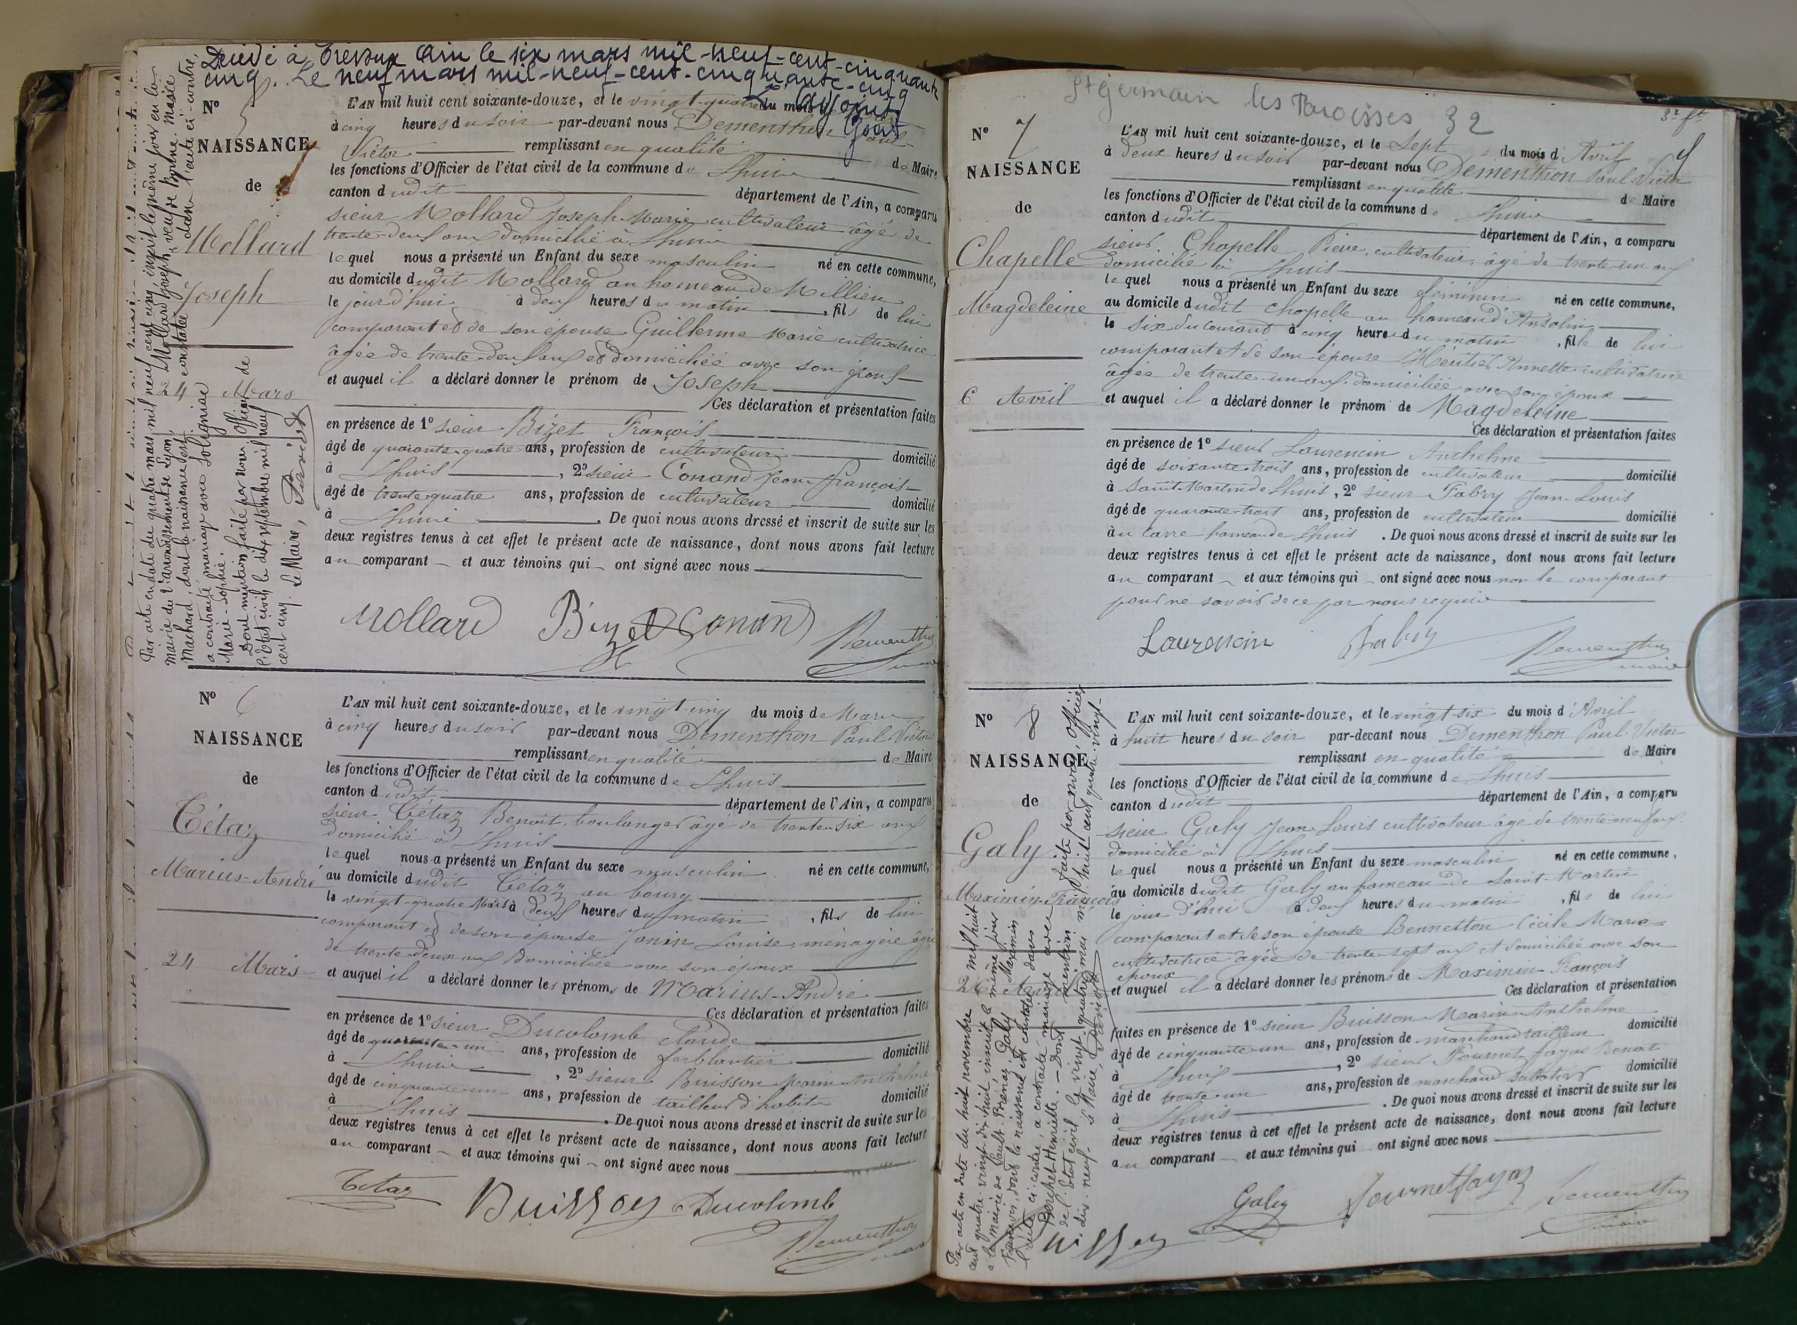 Décédé à Trévoux Ain le six mars mil-neuf-cent-cinquante
cinq. Le neuf mars mil-neuf-cent-cinquante-cinq
L'adjoint
N° 5
NAISSANCE
de
Mollard
Joseph
24 Mars
L'AN mil huit cent soixante-douze, et le vingt-quatre du mois de Mars
à cinq heures du soir par-devant nous Dementhon Paul
Victor remplissant en qualité de Maire
les fonctions d'Officier de l'état civil de la commune de Lhuis
canton dudit département de l'Ain, a comparu
sieur Mollard Joseph Marie cultivateur âgé de
trente-deux ans domicilié à Lhuis
lequel nous a présenté un Enfant du sexe masculin né en cette commune,
au domicile dudit Mollard au hameau de Millieu
le jour d'hui à deux heures du matin, fils de lui
comparant et de son épouse Guillerme Marie cultivatrice
âgée de trente-deux ans et domiciliée avec son époux
et auquel il a déclaré donner le prénom de Joseph
Ces déclaration et présentation faites
en présence de 1° sieur Bizet François
âgé de quarante-quatre ans, profession de cultivateur domicilié
à Lhuis, 2° sieur Conand Jean-François
âgé de trente-quatre ans, profession de cultivateur domicilié
à Lhuis. De quoi nous avons dressé et inscrit de suite sur les
deux registres tenus à cet effet le présent acte de naissance, dont nous avons fait lecture
au comparant et aux témoins qui ont signé avec nous
Mollard Bizet Conand Dementhon
maire
Par acte en date du quatre mars mil neuf cent cinq, inscrit le même jour en la
mairie du arrondissement de Lyon, Mollard Joseph, veuf de Marie
Machard, dont la naissance est constatée dans l'acte ci-contre,
a contracté mariage avec Solignac
Marie-Sophie.
Dont mention faite par nous Officier de
l'état civil le dix septembre mil neuf
cent cinq. Le Maire,
N° 6
NAISSANCE
de
Tétaz
Marius-André
24 Mars
L'AN mil huit cent soixante-douze, et le vingt cinq du mois de Mars
à cinq heures du soir par-devant nous Dementhon Paul-Victor
remplissant en qualité de Maire
les fonctions d'Officier de l'état civil de la commune de Lhuis
canton dudit département de l'Ain, a comparu
sieur Tétaz Benoit, boulanger âgé de trente-six ans
domicilié à Lhuis
lequel nous a présenté un Enfant du sexe masculin né en cette commune,
au domicile dudit Tétaz au bourg
le vingt-quatre Mars à deux heures du matin, fils de lui
comparant et de son épouse Janin Louise, ménagère âgée
de trente-deux ans domiciliée avec son époux
et auquel il a déclaré donner les prénoms de Marius-André
Ces déclaration et présentation faites
en présence de 1° sieur Ducolomb Claude
âgé de quarante-un ans, profession de ferblantier domicilié
à Lhuis, 2° sieur Buisson Marin-Anthelme
âgé de cinquante-un ans, profession de tailleur d'habits domicilié
à Lhuis. De quoi nous avons dressé et inscrit de suite sur les
deux registres tenus à cet effet le présent acte de naissance, dont nous avons fait lecture
au comparant et aux témoins qui ont signé avec nous
Tétaz Buisson Ducolomb
Dementhon
maire
St Germain les Paroisses 32
N° 7
NAISSANCE
de
Chapelle
Magdeleine
6 Avril
L'AN mil huit cent soixante-douze, et le Sept du mois d'Avril
à deux heures du soir par-devant nous Dementhon Paul Victor
remplissant en qualité de Maire
les fonctions d'Officier de l'état civil de la commune de Lhuis
canton dudit département de l'Ain, a comparu
sieur Chapelle Pierre, cultivateur, âgé de trente un ans
domicilié à Lhuis
lequel nous a présenté un Enfant du sexe féminin né en cette commune,
au domicile dudit Chapelle au hameau d'Ansolin
le six du courant à cinq heures du matin, fille de lui
comparant et de son épouse Annette cultivatrice
âgée de trente-un ans, domiciliée avec son époux
et auquel il a déclaré donner le prénom de Magdeleine
Ces déclaration et présentation faites
en présence de 1° sieur Laurencin Anthelme
âgé de soixante-trois ans, profession de cultivateur domicilié
à Saint-Martin de Lhuis, 2° sieur Fabry Jean-Louis
âgé de quarante-trois ans, profession de cultivateur domicilié
à hameau de Lhuis. De quoi nous avons dressé et inscrit de suite sur les
deux registres tenus à cet effet le présent acte de naissance, dont nous avons fait lecture
au comparant et aux témoins qui ont signé avec nous non le comparant
pour ne savoir de ce par nous requis
Laurencin Fabry Dementhon
maire
N° 8
NAISSANCE
de
Galy
Maximin-François
L'AN mil huit cent soixante-douze, et le vingt-six du mois d'Avril
à huit heures du soir par-devant nous Dementhon Paul-Victor
remplissant en qualité de Maire
les fonctions d'Officier de l'état civil de la commune de Lhuis
canton dudit département de l'Ain, a comparu
sieur Galy Jean-Louis cultivateur âgé de trente-neuf ans
domicilié à Lhuis
lequel nous a présenté un Enfant du sexe masculin né en cette commune,
au domicile dudit Galy au hameau de Saint-Martin
le jour d'hui à deux heures du matin, fils de lui
comparant et de son épouse Bennetton Cécile Marie
cultivatrice âgée de trente-sept ans et domiciliée avec son
époux
et auquel il a déclaré donner les prénoms de Maximin-François
Ces déclaration et présentation
faites en présence de 1° sieur Buisson Marin-Anthelme
âgé de cinquante-un ans, profession de marchand tailleur domicilié
à Lhuis, 2° sieur Benoit
âgé de trente-un ans, profession de marchand domicilié
à Lhuis. De quoi nous avons dressé et inscrit de suite sur les
deux registres tenus à cet effet le présent acte de naissance, dont nous avons fait lecture
au comparant et aux témoins qui ont signé avec nous
Galy Dementhon
maire
Par acte en date du huit novembre mil huit
cent quatre vingt dix huit inscrit le même jour
à la mairie de Galy Maximin
François, dont la naissance est constatée dans
l'acte ci-contre, a contracté mariage avec
Henriette. Dont mention faite par nous, Officier
de l'état civil le vingt quatre mai mil huit cent quatre vingt
dix neuf. Le Maire,